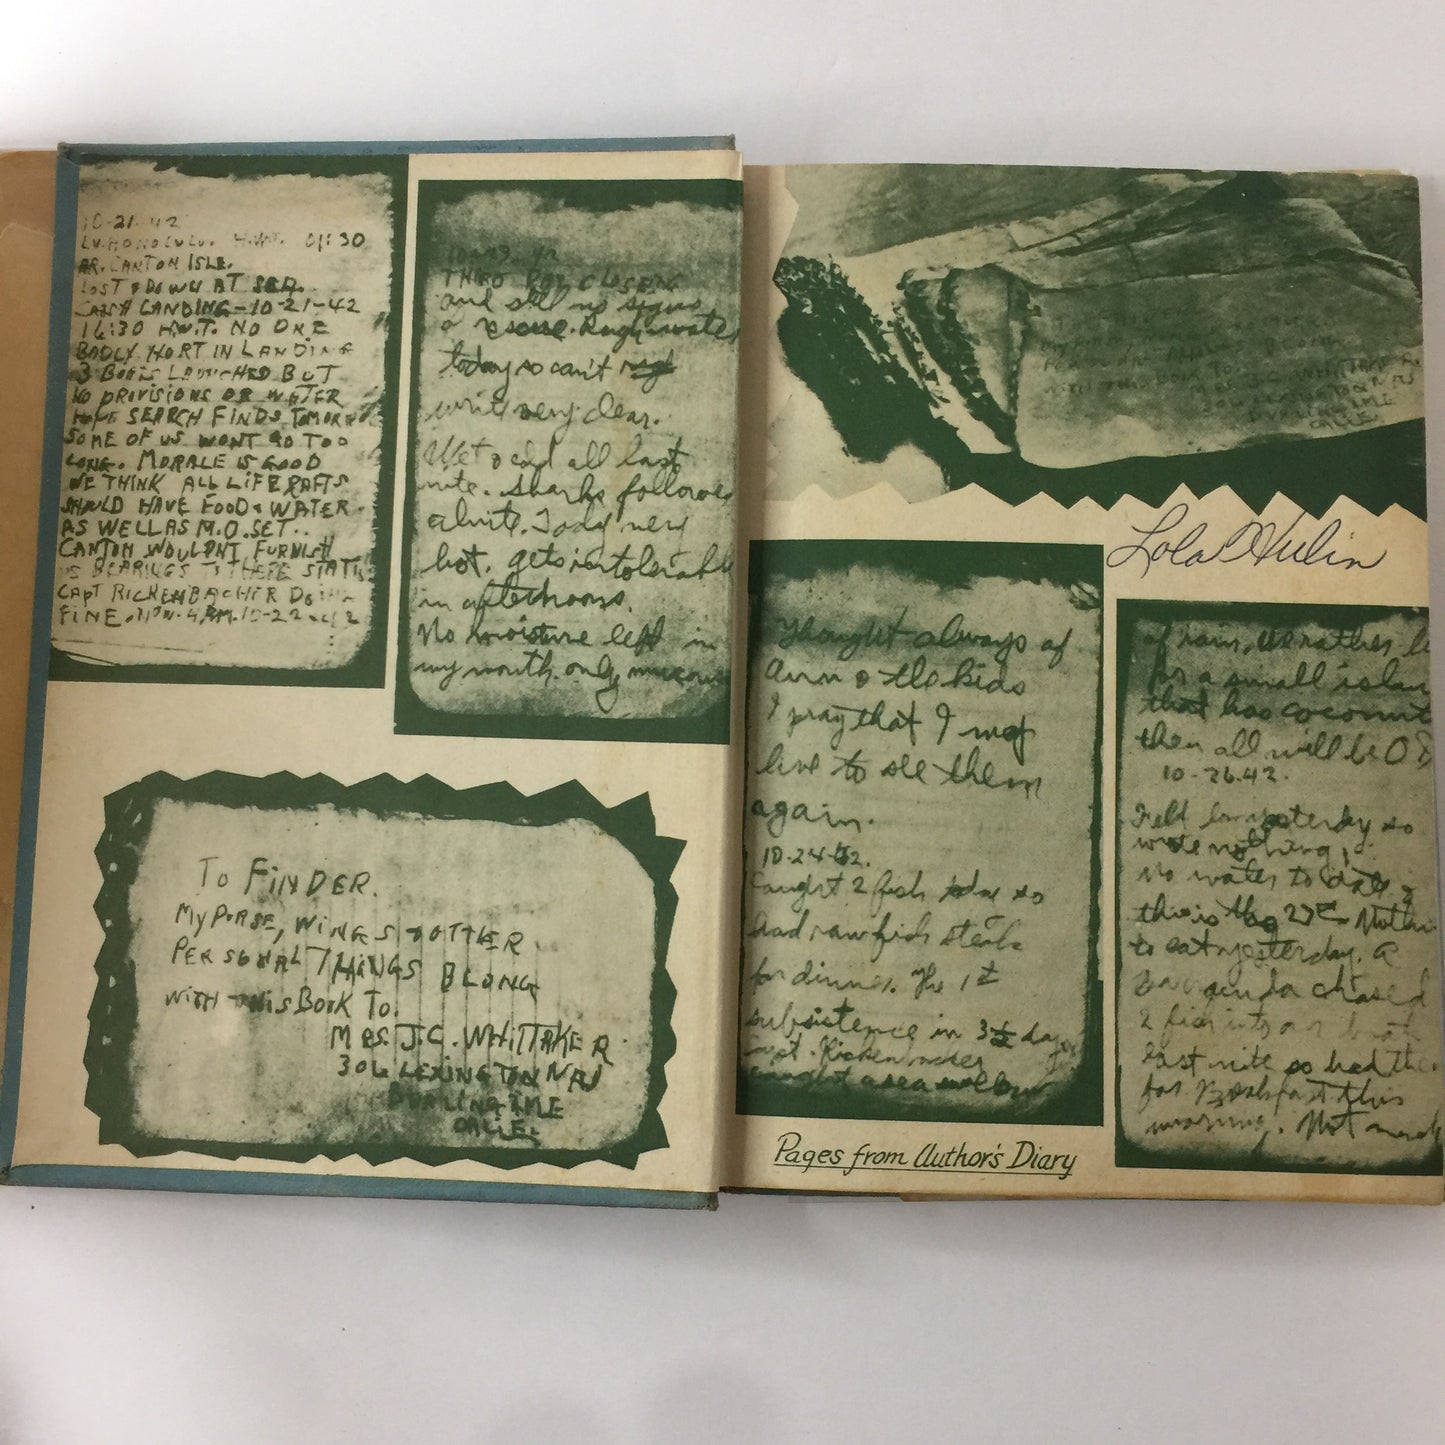 10-21-42
LV. HONOLULU. H.W.T. 01:30
AR. CANTON ISLE.
LOST & DOWN AT SEA.
CRASH LANDING-10-21-42
16:30 H.W.T. NO ONE
BADLY HURT IN LANDING
3 BOATS LAUNCHED BUT
NO PROVISIONS OR WATER
HOPE SEARCH FINDS TOMORROW
SOME OF US WONT GO TOO
LONG. MORALE IS GOOD
WE THINK ALL LIFE RAFTS
SHOULD HAVE FOOD & WATER
AS WELL AS M.O. SET..
CANTON WOULDNT FURNISH
US BEARINGS
CAPT RICKENBACHER DOING
FINE. 10-22-42
THIRD DAY CLOSENG
and still no signs
o rescue. Rough water
today so can't
write very clear.
Wet & cold all last
nite. Sharks followed
alnite. Today very
hot. gets intolerable
in afternoons.
No moisture left in
my mouth. only mucous
TO FINDER.
MY PURSE, WINGS & OTHER
PERSONAL THINGS BLONG
WITH THIS BOOK TO.
MRS. J.C. WHITTAKER
306 LEXINGTON WAY
BURLINGAME
CALIF.
WITH THIS BOOK TO.
MRS. J.C. WHITTAKER
BURLINGAME
CALIF.
Lola Hulin
Thought always of
Ann & the kids
I pray that I may
live to see them
again.
10-24-42.
Caught 2 fish so
had raw fish steak
for dinner. The 1st
subsistence in 3½ days
Capt. Rickenbacker
caught a sea swallow
Pages from Author's Diary
of rain, we rather
for a small islan
that has coconut
then all will be O
10-26-42.
Field yesterday so
wrote nothing,
No water to date &
this is the 27th Nothin
to eat yesterday. A
Barracuda chased
2 fish into our boat
last nite so had the
for Breakfast this
morning. Not much